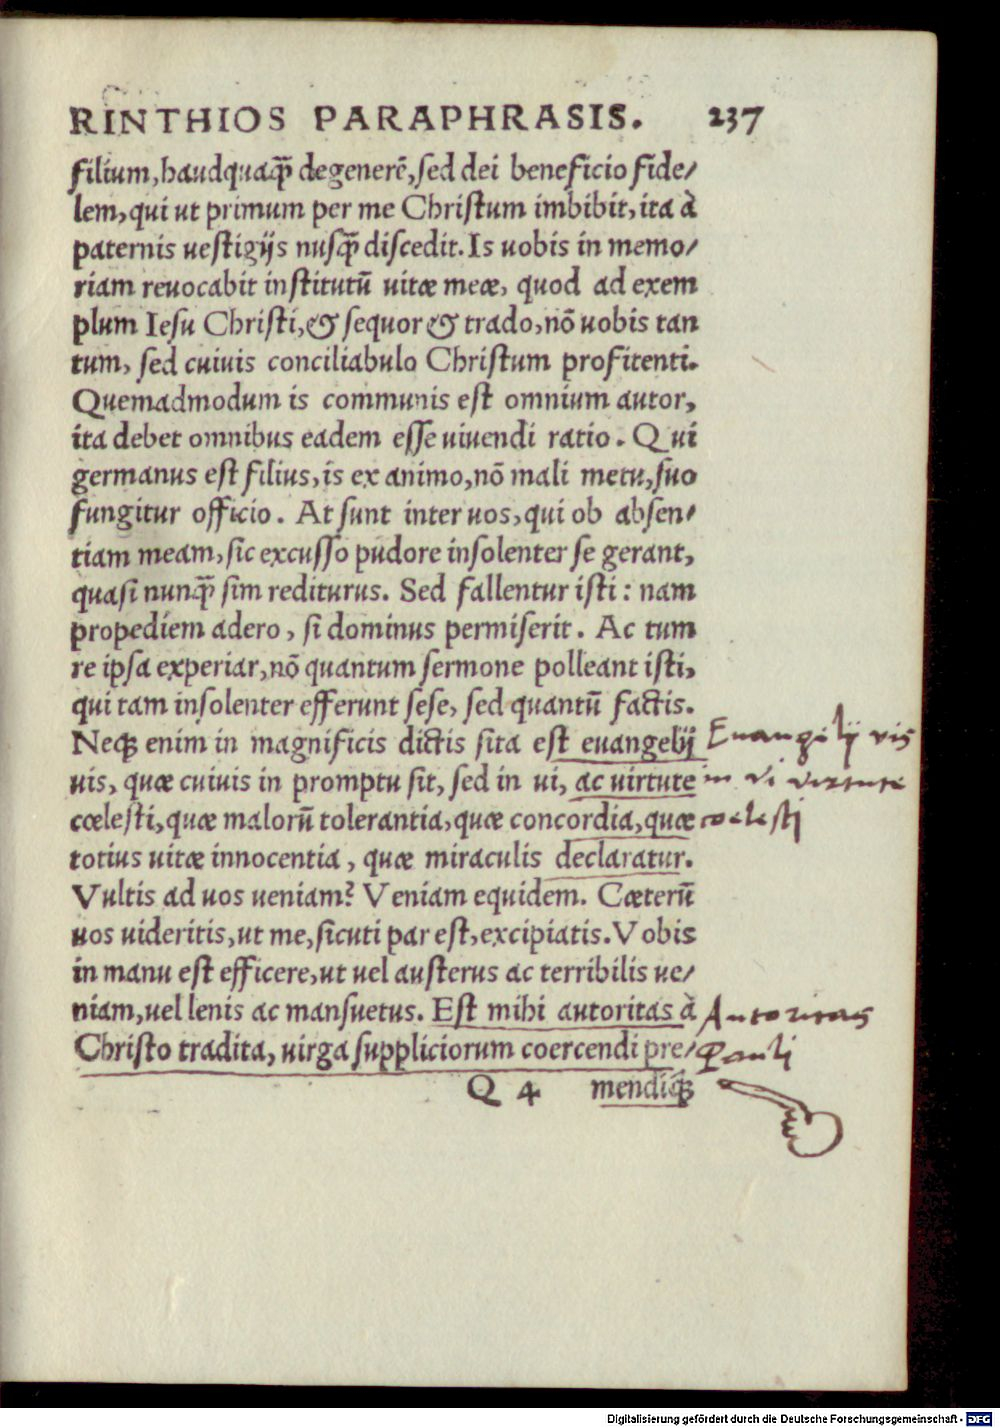 RINTHIOS PARAPHRASIS. 237
filium, haudquaq̃ degenerẽ, sed dei beneficio fide/
lem, qui ut primum per me Christum imbibit, ita à
paternis uestigijs nusq̃ discedit. Is uobis in memo/
riam reuocabit institutũ uitæ meæ, quod ad exem
plum Iesu Christi, & sequor & trado, nõ uobis tan
tum, sed cuiuis conciliabulo Christum profitenti.
Quemadmodum is communis est omnium autor,
ita debet omnibus eadem esse uiuendi ratio. Qui
germanus est filius, is ex animo, nõ mali metu, suo
fungitur officio. At sunt inter uos, qui ob absen/
tiam meam, sic excusso pudore insolenter se gerant,
quasi nunq̃ sim rediturus. Sed fallentur isti: nam
propediem adero, si dominus permiserit. Ac tum
re ipsa experiar, nõ quantum sermone polleant isti,
qui tam insolenter efferunt sese, sed quantũ factis.
Neq; enim in magnificis dictis sita est euangelij
uis, quæ cuiuis in promptu sit, sed in ui, ac uirtute
cœlesti, quæ malorũ tolerantia, quæ concordia, quæ
totius uitæ innocentia, quæ miraculis declaratur.
Vultis ad uos ueniam? Veniam equidem. Cæterũ
uos uideritis, ut me, sicuti par est, excipiatis. Vobis
in manu est efficere, ut uel austerus ac terribilis ue/
niam, uel lenis ac mansuetus. Est mihi autoritas à
Christo tradita, uirga suppliciorum coercendi pre/
Q 4 mendiq;
Euangelij vis
in vi virtute
coelesti
Autoritas
Pauli
Digitalisierung gefördert durch die Deutsche Forschungsgemeinschaft - DFG